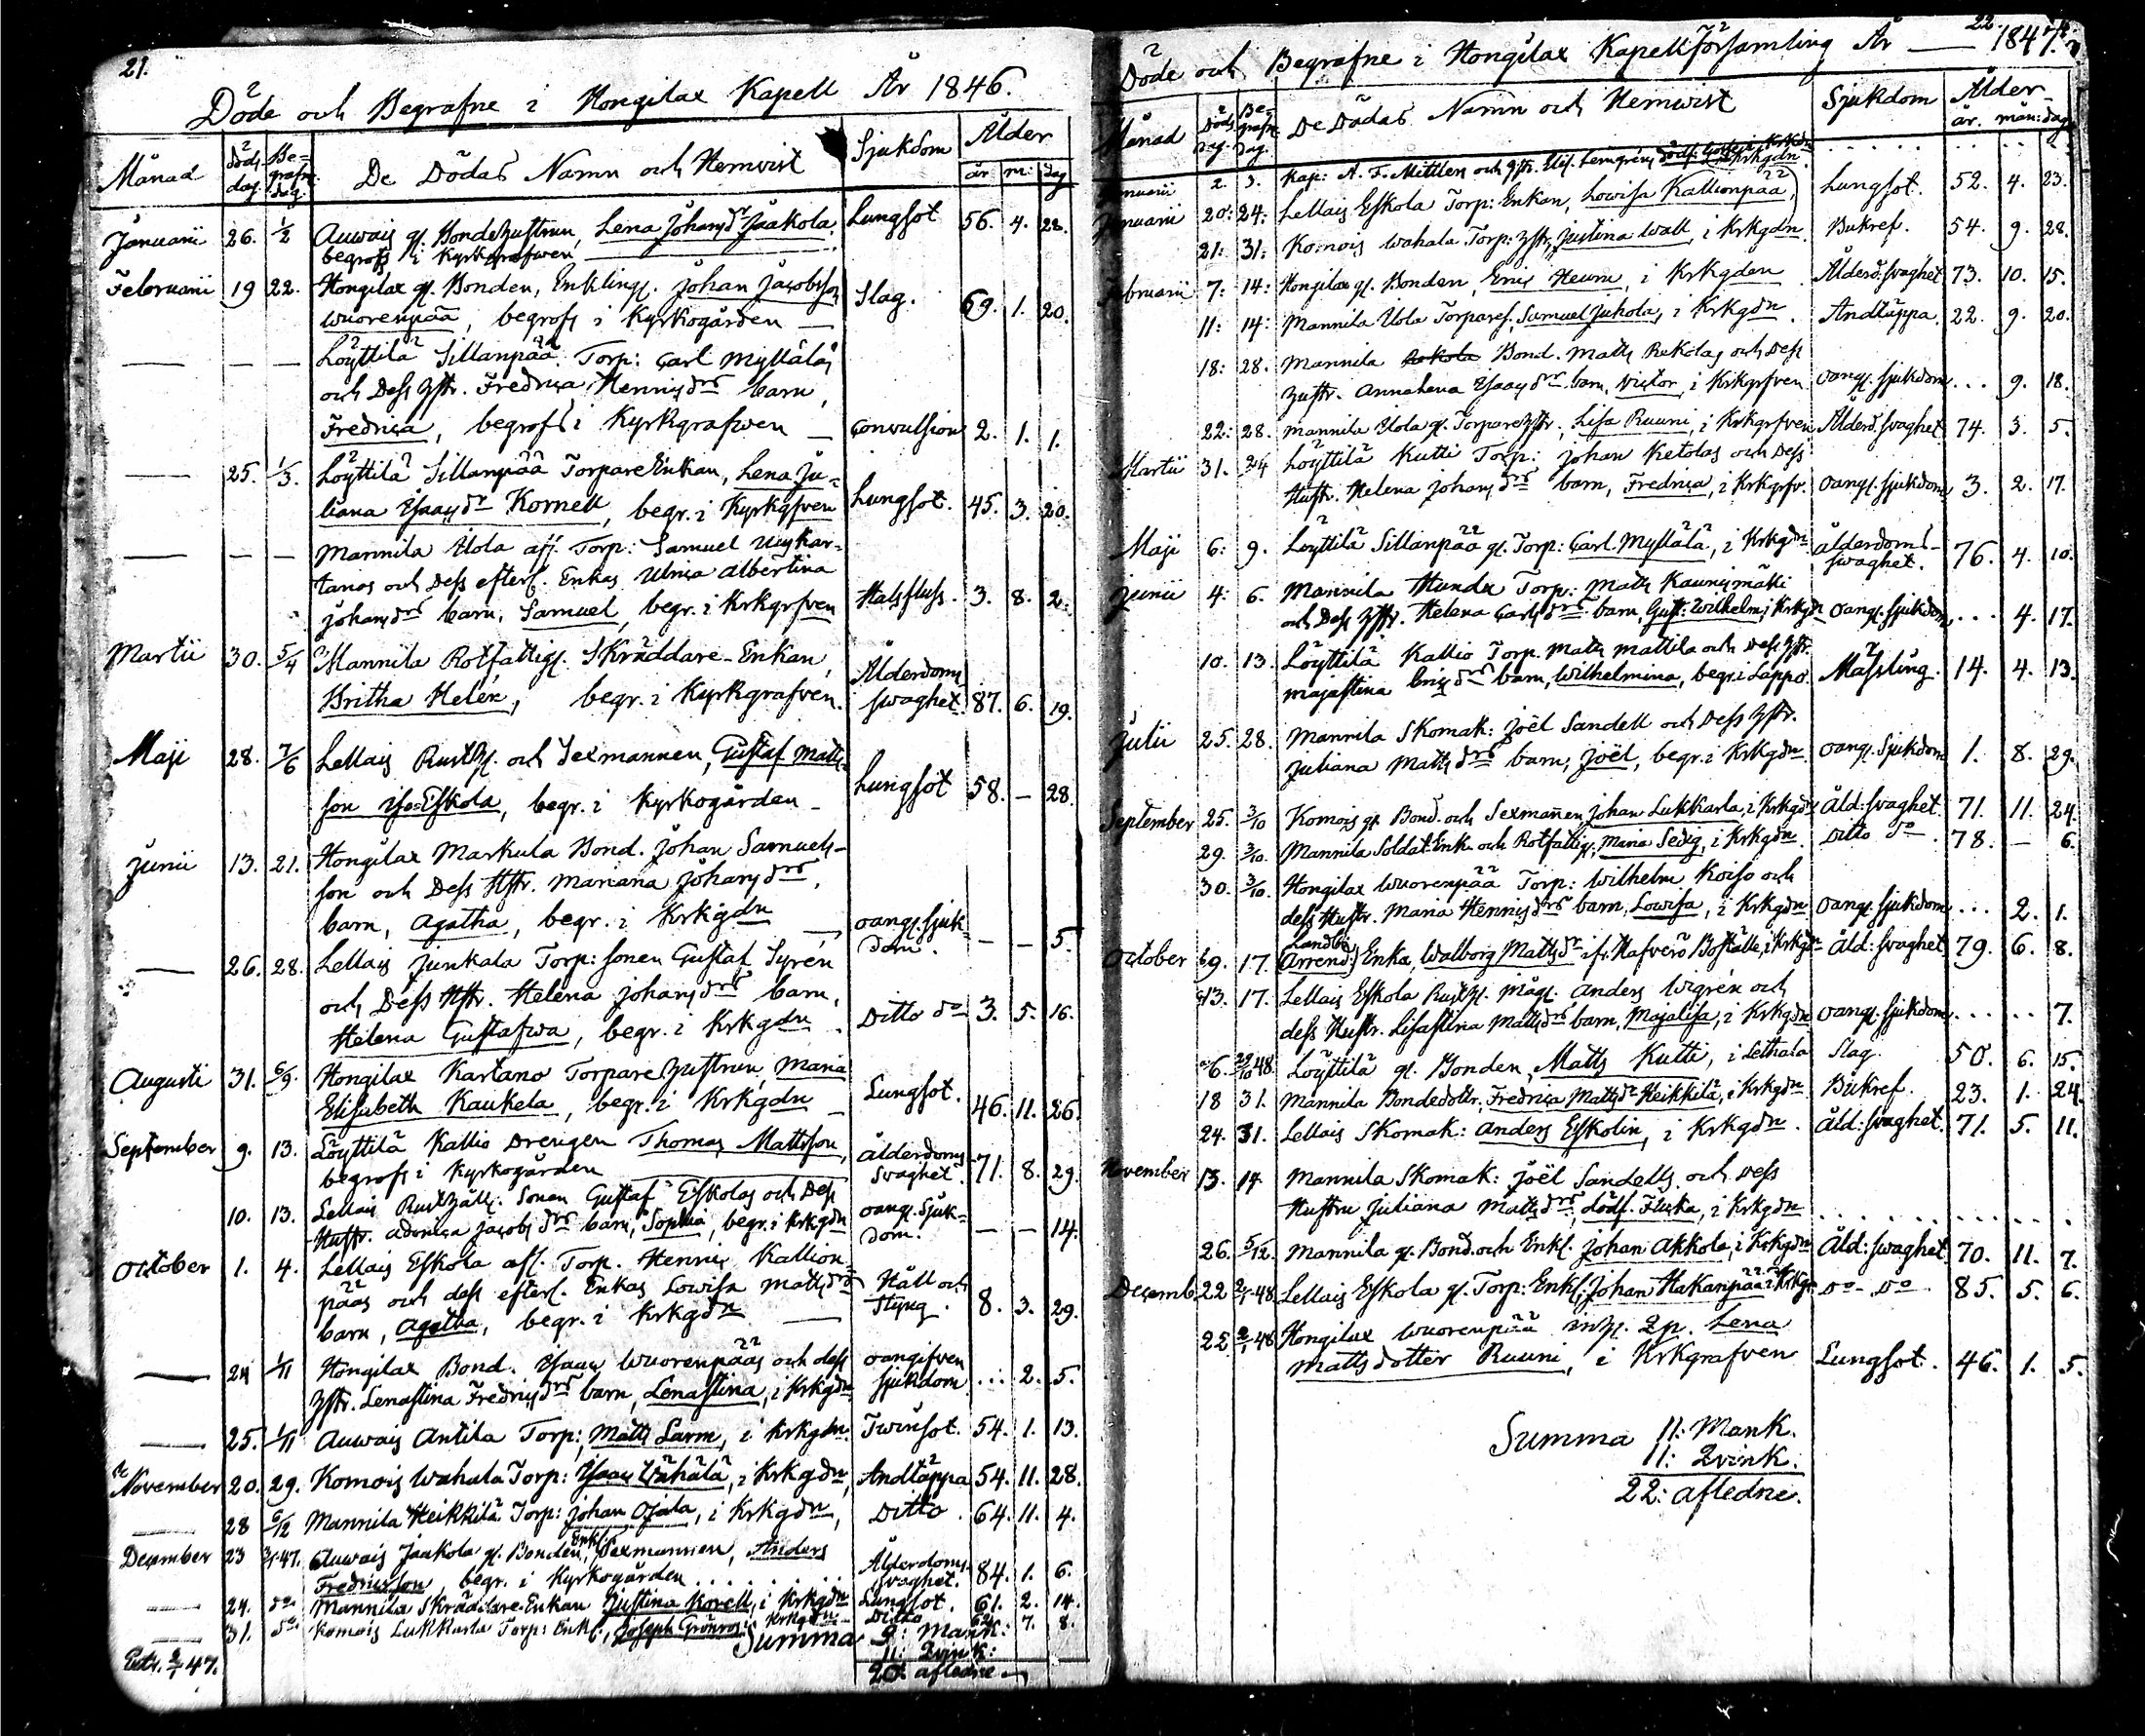 21.
Döde och Begrafne i Hongilax Kapell År 1846.
Månad
döds dag.
Be= grafn. dag.
De Dödas Namn och Hemvist
Sjukdom
Ålder
år. m: dag
Januarii 26. 1/2 Auwais gl. Bondehustrun, Lena Johansdr Jaakola, Lungsot 56. 4. 28.
begrofs i Kyrkgrafwen
Februarii 19 22. Hongilax gl. Bonden, Enklingl. Johan Jacobsson Slag. 69. 1. 20.
Wuorenpää, begrofs i Kyrkogården —
— — — Löyttilä Sillanpää Torp: Carl Mylläläs
och Dess Hstr. Fredrica Hennisdrs barn,
Fredrica, begrofs i Kyrkgrafwen — Convulsion 2. 1. 1.
— 25. 1/3. Löyttilä Sillanpää Torpare Enkan, Lena Ju=
liana Esaasdr Kornell, begr. i Kyrkgfven Lungsot. 45. 3. 20.
— — — Mannila Uola afl. Torp: Samuel
tanos och Dess efterl. Enkas Ulrica Albertina
Johansdrs barn, Samuel, begr. i Krkgrfven Halsfluss. 3. 8. 2.
Martii 30. 5/4 Mannila Rotfattigl. Skräddare-Enkan, Ålderdoms
Britha Helén, begr. i Kyrkgrafven. swaghet. 87. 6. 19.
Maji 28. 7/6 Lellais Rusth. och Sexmannen, Gustaf Matts=
son Iso=Eskola, begr. i Kyrkogården — Lungsot 58. — 28.
Junii 13. 21. Hongilax Markula Bond. Johan Samuels-
son och Dess Hstr. Mariana Johansdrs,
barn, Agatha, begr. i Krkgdn — oang. sjuk=
dom. — — 5.
— 26. 28. Lellais Junkala Torp: sonen Gustaf Syrén
och Dess Hstr. Helena Johansdrs barn,
Helena Gustafwa, begr. i Krkgdn. Ditto do 3. 5. 16.
Augusti 31. 6/9. Hongilax Kartano Torpare hustrun, Maria
Elisabeth Kaukela, begr. i Krkgdn — Lungsot. 46. 11. 26.
September 9. 13. Löyttilä Kallio Drengen Thomas Mattsson, ålderdoms
begrofs i Kyrkogården Svaghet. 71. 8. 29.
10. 13. Lellais Rusthåll: Sonen Gustaf Eskolas och Dess oang. Sjuk=
Hustr. Adrica Jacobsdrs barn, Sophia, begr. i Krkgdn dom. — — 14.
October 1. 4. Lellais Eskola afl. Torp. Henric Kallion=
pääs och dess efterl. Enkas Lowisa Mattsdrs Håll och
barn, Agatha, begr. i Krkgdn — Styng. 8. 3. 29.
— 24 1/11 Hongilax Bond. Isaac Wuorenpääs och dess oangifven
Hstr. Lenastina Fredricsdrs barn, Lenastina, i Krkgdn sjukdom ... 2. 5.
— 25. 1/11 Auwais Antila Torp: Matts Larm, i Krkgdn. Twinsot. 54. 1. 13.
November 20. 29. Komois Wahala Torp: Isaac Wähälä, i Krkgdn, Andtäppa 54. 11. 28.
— 28 6/12 Mannila Heikkilä Torp: Johan Ojala, i Krkgdn, Ditto. 64. 11. 4.
December 23 3/1.47. Auwais Jaakola gl. Bonden, Enkl. Sexmannen, Anders Ålderdoms
Fredricsson, begr. i Kyrkogården . . . . . . svaghet. 84. 1. 6.
— 24. do Mannila Skräddare-Enkan Justina Korell, i Krkgdn Lungsot. 61. 2. 14.
— 31. do Komois Lukkarla Torp: Enkl., Joseph Grönroos, Krkgdn Ditto 62. 7. 8.
Summa 9: Mank:
11: Qvink:
20: afledne
2/1 47.
22.
Döde och Begrafne i Hongilax Kapellförsamling År — 1847.
Månad
Döds dag.
Be= grafn. dag.
De Dödas Namn och Hemvist
Sjukdom
Ålder
år. mån: dag
Januarii 2. 3. Kap: A. F. Mittlers och Hstr. Elis. Lemgréns dödf. i Krkgdn
Januarii 20: 24: Lellais Eskola Torp: Enkan, Lowisa Kallionpää, Krkgdn. Lungsot. 52. 4. 23.
21: 31: Komois Wahala Torp: Hstr, Justina Wall, i Krkgdn. Bukref. 54. 9. 28.
Februarii 7: 14: Hongilax gl. Bonden, Eric Heurn, i Krkgden Ålderd. svaghet 73. 10. 15.
11: 14: Mannila Uola Torparef. Samuel Juhola, i Krkgdn. Andtäppa. 22. 9. 20.
18: 28. Mannila Bond. Matts Rekolas och Dess
Hustr. Annahena Esaasdrs barn, Victor, i Krkgrfven oangl. sjukdom ... 9. 18.
22: 28. Mannila Uola gl. Torpare Hstr., Lisa Ruuni, i Krkgrfven Ålderd. svaghet 74. 3. 5.
Martii 31. 24 Löyttilä Kutti Torp: Johan Ketolas och Dess
Hustr. Helena Johansdrs barn, Fredrica, i Krkgrfv. oangl. sjukdom 3. 2. 17.
Maji 6: 9. Löyttilä Sillanpää gl. Torp: Carl Myllälä, i Krkgdn ålderdoms-
swaghet. 76. 4. 10.
Junii 4: 6. Mannila Hundu Torp: Matts Kaunismäki
och Dess Hstr. Helena Carlsdrs barn, Gust: Wilhelm, i Krkgdn oangl. sjukdom ... 4. 17.
10. 13. Löyttilä Kallio Torp. Matts Mattila och Dess Hstr.
Majastina Ericsdrs barn, Wilhelmina, begr. i Lappo. Mässling. 14. 4. 13.
Julii 25. 28. Mannila Skomak: Joël Sandell och Dess Hstr.
Juliana Mattsdrs barn, Joël, begr. i Krkgdn. oang. Sjukdom 1. 8. 29.
September 25. 3/10 Komois gl. Bond. och Sexmanen, Johan Lukkarla, i Krkgdn Åld: svaghet. 71. 11. 24.
29. 3/10. Mannila Soldat Enk. och Rotfattigl., Maria Sedig, i Krkgdn. Ditto do. 78. — 6.
30. 3/10. Hongilax Wuorenpää Torp: Wilhelm Koiso och
dess Hustr. Maria Hennisdrs barn, Lowisa, i Krkgdn oang. sjukdom ... 2. 1.
Landb:
October 9. 17. (Arrend:) Enka, Walborg Mattsdr ifr. Hafverö Boställe, i Krkgdn Åld: svaghet 79. 6. 8.
13. 17. Lellais Eskola Rusth. mågl. Anders Wigrén och
dess Hustr. Lisastina Mattsdrs barn, Majalisa, i Krkgdn oangl. sjukdom ... ... 7.
6. 29/10 48. Löyttilä gl. Bonden, Matts Kutti, i Lethala Slag. 50. 6. 15.
18 31. Mannila Bondedottr, Fredrica Mattsdr Heikkilä, i Krkgdn Bukref. 23. 1. 24.
24. 31. Lellais Skomak: Anders Eskolin, i Krkgdn. Åld: svaghet. 71. 5. 11.
November 13. 14. Mannila Skomak: Joël Sandells och Dess
Hustru Juliana Mattsdrs, dödf. Flicka, i Krkgdn
26. 5/12. Mannila gl. Bond. och Enkl. Johan Akkola, i Krkgdn Åld: svaghet 70. 11. 7.
Decemb. 22 2/1.48. Lellais Eskola gl. Torp: Enkl: Johan Hakanpää, i Krkg. do - do 85. 5. 6.
25. 2/1 48 Hongilax Wuorenpää inh. Qp. Lena
Mattsdotter Ruuni, i Krkgrafven Lungsot. 46. 1. 5.
Summa 11: Mank.
11: Qvink.
22: afledne.